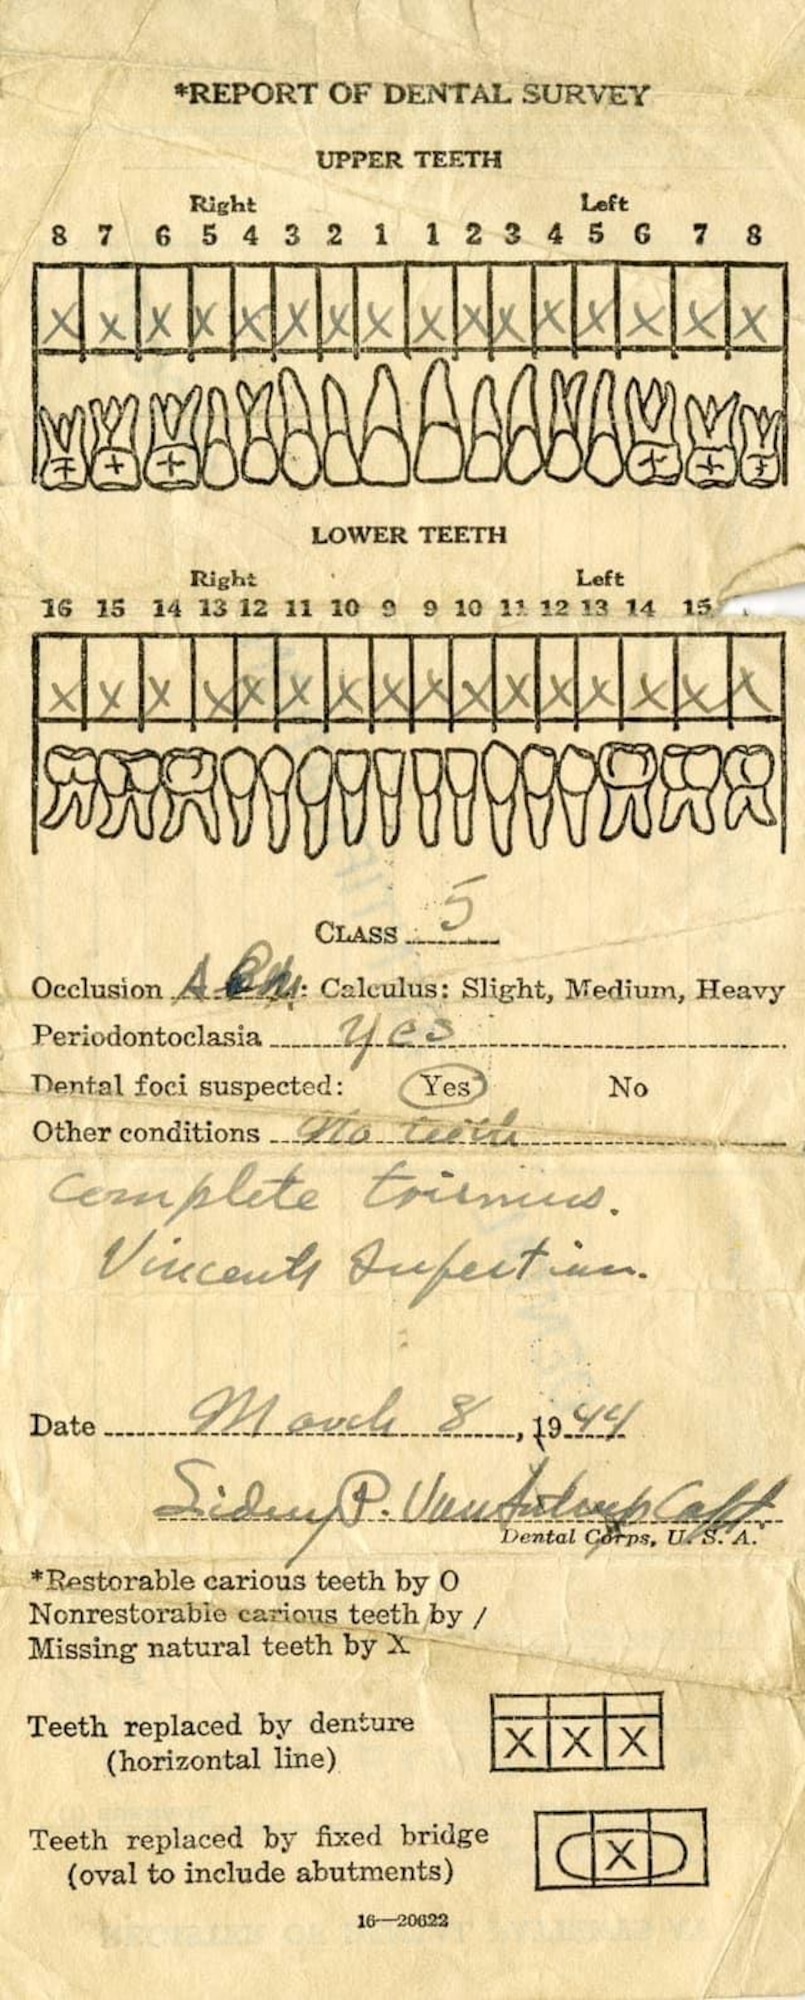 *REPORT OF DENTAL SURVEY
UPPER TEETH
Right Left
8 7 6 5 4 3 2 1 1 2 3 4 5 6 7 8
X X X X X X X X X X X X X X X X
LOWER TEETH
Right Left
16 15 14 13 12 11 10 9 9 10 11 12 13 14 15
X X X X X X X X X X X X X X X X
CLASS 5
Occlusion : Calculus: Slight, Medium, Heavy
Periodontoclasia yes
Dental foci suspected: Yes No
Other conditions No teeth
Complete trismus.
Vincents Infection.
Date March 8, 1944
Sidney P. Van Antwerp Capt
Dental Corps, U. S. A.
*Restorable carious teeth by O
Nonrestorable carious teeth by /
Missing natural teeth by X
Teeth replaced by denture
(horizontal line)
X X X
Teeth replaced by fixed bridge
(oval to include abutments)
X
16—20622